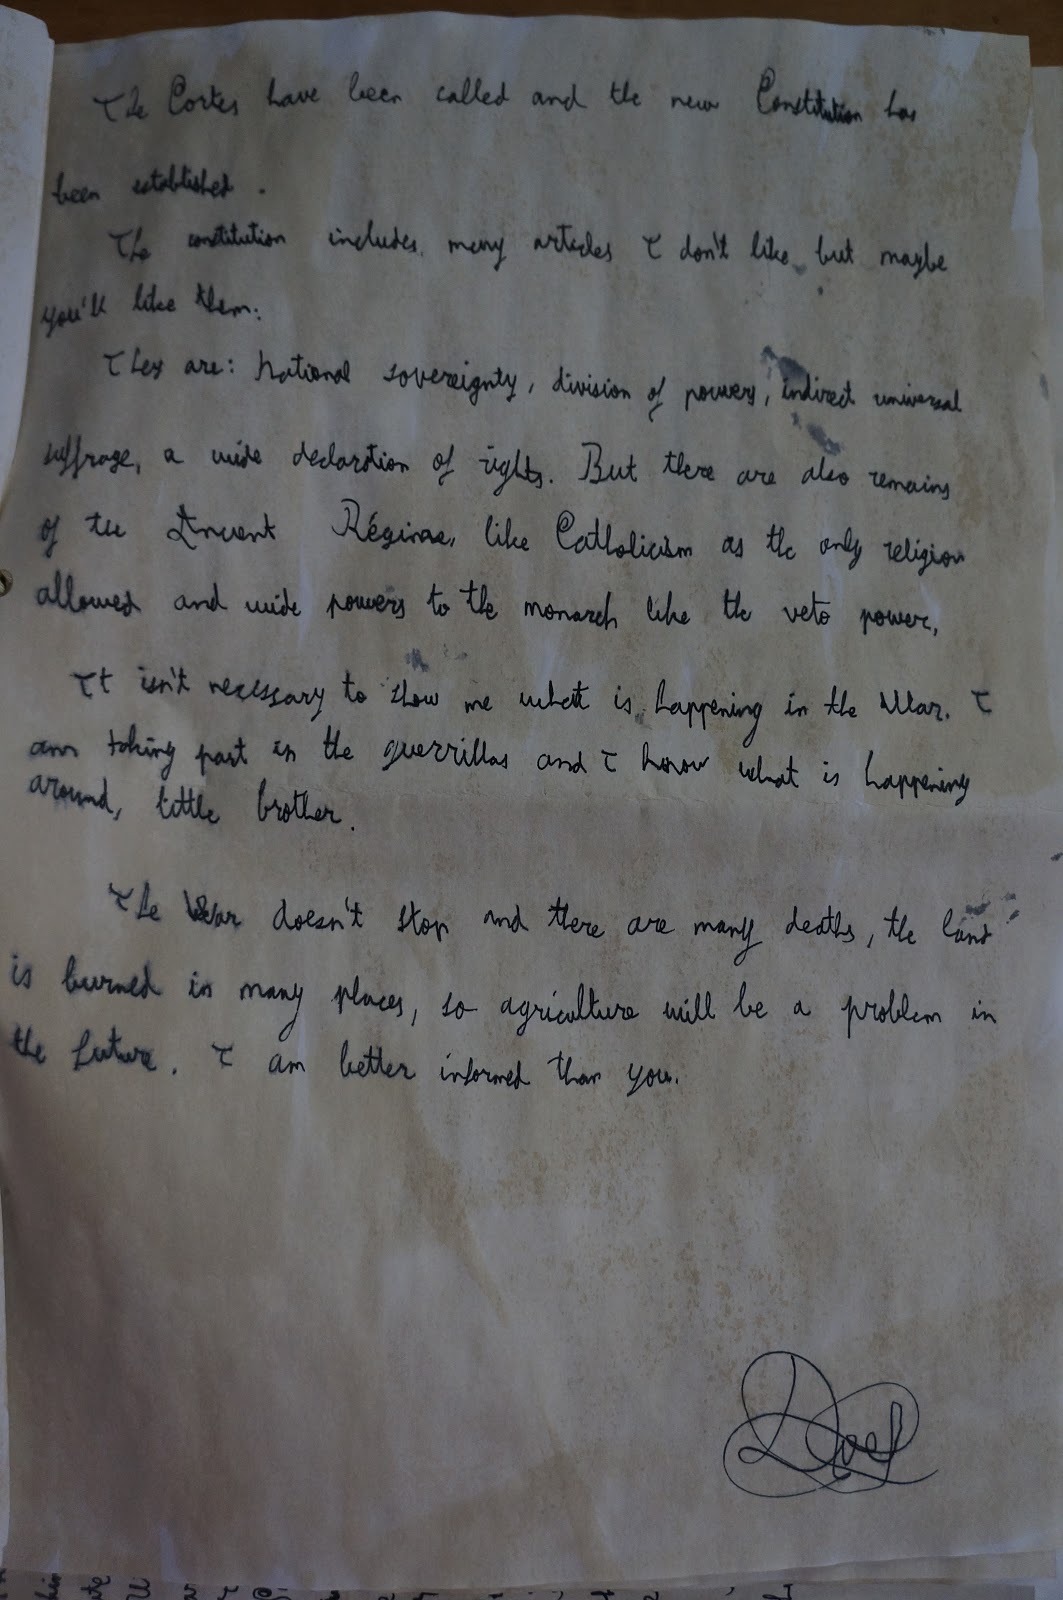 The Cortes have been called and the new Constitution has
been established.
The constitution includes many articles I don't like but maybe
you'll like them:
They are: National sovereignty, division of powers, indirect universal
suffrage, a wide declaration of rights. But there are also remains
of the Ancient Régime, like Catholicism as the only religion
allowed and wide powers to the monarch like the veto power.
It isn't necessary to show me what is happening in the War. I
am taking part in the guerrillas and I know what is happening
around, little brother.
The War doesn't stop and there are many deaths, the land
is burned in many places, so agriculture will be a problem in
the future. I am better informed than you.